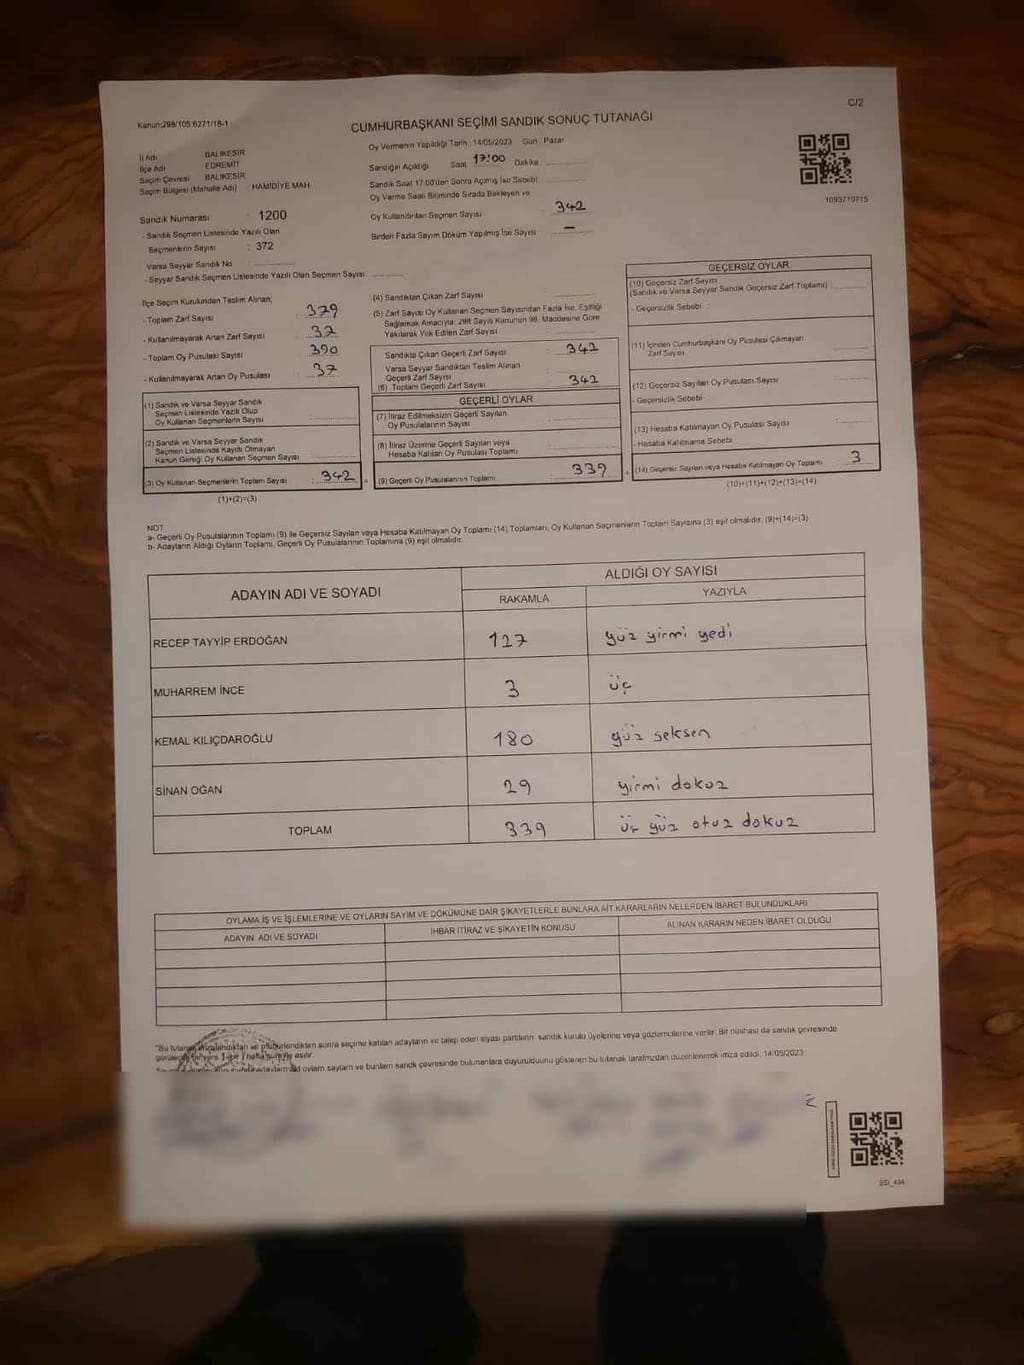 Kanun:298/105;6271/18-1
C/2
CUMHURBAŞKANI SEÇİMİ SANDIK SONUÇ TUTANAĞI
İl Adı BALIKESİR
İlçe Adı EDREMİT
Seçim Çevresi BALIKESİR
Seçim Bölgesi (Mahalle Adı) HAMİDİYE MAH
Sandık Numarası : 1200
- Sandık Seçmen Listesinde Yazılı Olan
Seçmenlerin Sayısı : 372
Varsa Seyyar Sandık No :
- Seyyar Sandık Seçmen Listesinde Yazılı Olan Seçmen Sayısı:
Oy Vermenin Yapıldığı Tarih :14/05/2023 Gün : Pazar
Sandığın Açıldığı Saat 17:00 Dakika :
Sandık Saat 17.00'den Sonra Açılmış İse Sebebi
Oy Verme Saati Bitiminde Sırada Bekleyen ve
Oy Kullandırılan Seçmen Sayısı : 342
Birden Fazla Sayım Döküm Yapılmış İse Sayısı : —
1093710715
İlçe Seçim Kurulundan Teslim Alınan;
- Toplam Zarf Sayısı : 379
- Kullanılmayarak Artan Zarf Sayısı : 37
- Toplam Oy Pusulası Sayısı : 390
- Kullanılmayarak Artan Oy Pusulası : 37
(1) Sandık ve Varsa Seyyar Sandık
Seçmen Listesinde Yazılı Olup
Oy Kullanan Seçmenlerin Sayısı
(2) Sandık ve Varsa Seyyar Sandık
Seçmen Listesinde Kayıtlı Olmayan
Kanun Gereği Oy Kullanan Seçmen Sayısı
(3) Oy Kullanan Seçmenlerin Toplam Sayısı : 342
(1)+(2)=(3)
(4) Sandıktan Çıkan Zarf Sayısı
(5) Zarf Sayısı Oy Kullanan Seçmen Sayısından Fazla İse, Eşitliği
Sağlamak Amacıyla; 298 Sayılı Kanunun 98. Maddesine Göre
Yakılarak Yok Edilen Zarf Sayısı
Sandıkta Çıkan Geçerli Zarf Sayısı : 342
Varsa Seyyar Sandıktan Teslim Alınan
Geçerli Zarf Sayısı
(6) Toplam Geçerli Zarf Sayısı : 342
GEÇERLİ OYLAR
(7) İtiraz Edilmeksizin Geçerli Sayılan
Oy Pusulalarının Sayısı
(8) İtiraz Üzerine Geçerli Sayılan veya
Hesaba Katılan Oy Pusulası Toplamı
(9) Geçerli Oy Pusulalarının Toplamı : 339
GEÇERSİZ OYLAR
(10) Geçersiz Zarf Sayısı
(Sandık ve Varsa Seyyar Sandık Geçersiz Zarf Toplamı)
- Geçersizlik Sebebi :
(11) İçinden Cumhurbaşkanı Oy Pusulası Çıkmayan
Zarf Sayısı
(12) Geçersiz Sayılan Oy Pusulası Sayısı
- Geçersizlik Sebebi
(13) Hesaba Katılmayan Oy Pusulası Sayısı
- Hesaba Katılmama Sebebi
(14) Geçersiz Sayılan veya Hesaba Katılmayan Oy Toplamı 3
(10)+(11)+(12)+(13)=(14)
NOT
a- Geçerli Oy Pusulalarının Toplamı (9) ile Geçersiz Sayılan veya Hesaba Katılmayan Oy Toplamı (14) Toplamları, Oy Kullanan Seçmenlerin Toplam Sayısına (3) eşit olmalıdır. (9)+(14)=(3)
b- Adayların Aldığı Oyların Toplamı, Geçerli Oy Pusulalarının Toplamına (9) eşit olmalıdır.
ADAYIN ADI VE SOYADI ALDIĞI OY SAYISI
RAKAMLA YAZIYLA
RECEP TAYYİP ERDOĞAN 127 yüz yirmi yedi
MUHARREM İNCE 3 üç
KEMAL KILIÇDAROĞLU 180 yüz seksen
SİNAN OĞAN 29 yirmi dokuz
TOPLAM 339 üç yüz otuz dokuz
OYLAMA İŞ VE İŞLEMLERİNE VE OYLARIN SAYIM VE DÖKÜMÜNE DAİR ŞİKAYETLERLE BUNLARA AİT KARARLARIN NELERDEN İBARET BULUNDUKLARI
ADAYIN ADI VE SOYADI İHBAR İTİRAZ VE ŞİKAYETİN KONUSU ALINAN KARARIN NEDEN İBARET OLDUĞU
sonra seçime katılan adayların ve talep eden siyasi partilerin sandık kurulu üyelerine veya gözlemcilerine verilir. Bir nüshası da sandık çevresinde
1 hafta süreyle asılır.
oyların sayların ve bunların sandık çevresinde bulunanlara duyurulduğunu gösteren bu tutanak tarafımızdan düzenlenerek imza edildi. 14/05/2023